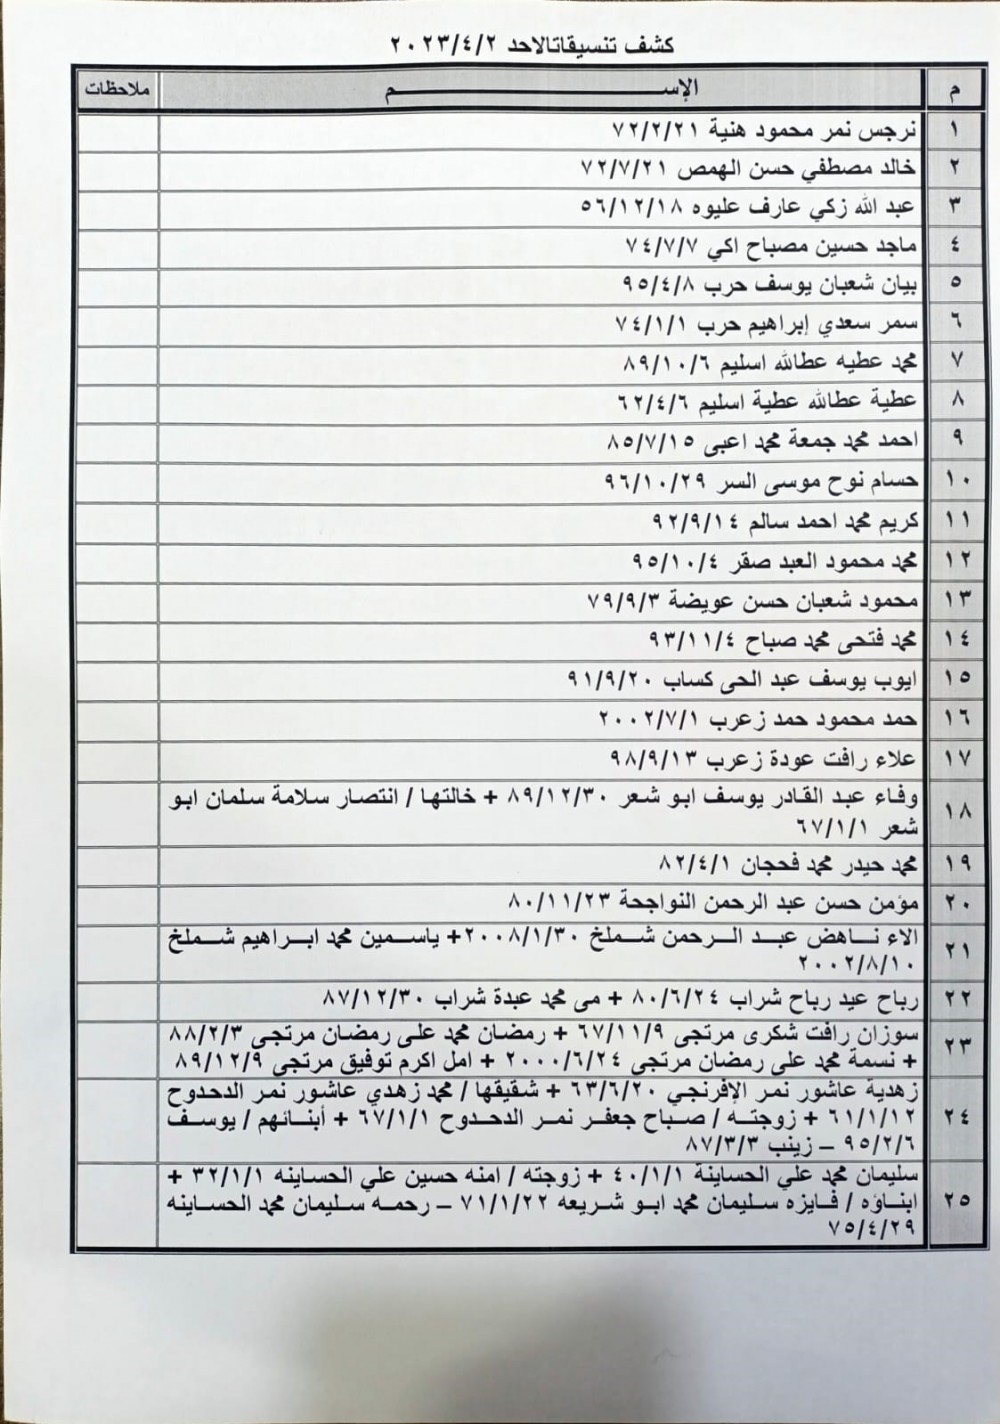 كشف تنسيقاتالاحد ٢٠٢٣/٤/٢
م الإســـــــم ملاحظات
١ نرجس نمر محمود هنية ٧٢/٢/٢١
٢ خالد مصطفي حسن الهمص ٧٢/٧/٢١
٣ عبد الله زكي عارف عليوه ٥٦/١٢/١٨
٤ ماجد حسين مصباح اكي ٧٤/٧/٧
٥ بيان شعبان يوسف حرب ٩٥/٤/٨
٦ سمر سعدي إبراهيم حرب ٧٤/١/١
٧ محمد عطيه عطالله اسليم ٨٩/١٠/٦
٨ عطية عطالله عطية اسليم ٦٢/٤/٦
٩ احمد محمد جمعة محمد اعبى ٨٥/٧/١٥
١٠ حسام نوح موسى السر ٩٦/١٠/٢٩
١١ كريم محمد احمد سالم ٩٢/٩/١٤
١٢ محمد محمود العبد صقر ٩٥/١٠/٤
١٣ محمود شعبان حسن عويضة ٧٩/٩/٣
١٤ محمد فتحى محمد صباح ٩٣/١١/٤
١٥ ايوب يوسف عبد الحى كساب ٩١/٩/٢٠
١٦ حمد محمود حمد زعرب ٢٠٠٢/٧/١
١٧ علاء رافت عودة زعرب ٩٨/٩/١٣
١٨ وفاء عبد القادر يوسف ابو شعر ٨٩/١٢/٣٠ + خالتها / انتصار سلامة سلمان ابو
شعر ٦٧/١/١
١٩ محمد حيدر محمد فحجان ٨٢/٤/١
٢٠ مؤمن حسن عبد الرحمن النواجحة ٨٠/١١/٢٣
٢١ الاء ناهض عبد الرحمن شملخ ٢٠٠٨/١/٣٠+ ياسمين محمد ابراهيم شملخ
٢٠٠٢/٨/١٠
٢٢ رباح عيد رباح شراب ٨٠/٦/٢٤ + مى محمد عبدة شراب ٨٧/١٢/٣٠
٢٣ سوزان رافت شكرى مرتجى ٦٧/١١/٩ + رمضان محمد على رمضان مرتجى ٨٨/٢/٣
+ نسمة محمد على رمضان مرتجى ٢٠٠٠/٦/٢٤ + امل اكرم توفيق مرتجى ٨٩/١٢/٩
٢٤ زهدية عاشور نمر الإفرنجي ٦٣/٦/٢٠ + شقيقها / محمد زهدي عاشور نمر الدحدوح
٦١/١/١٢ + زوجته / صباح جعفر نمر الدحدوح ٦٧/١/١ + أبنائهم / يوسف
٩٥/٢/٦ – زينب ٨٧/٣/٣
٢٥ سليمان محمد علي الحساينة ٤٠/١/١ + زوجته / امنه حسين علي الحساينه ٣٢/١/١ +
ابناؤه / فايزه سليمان محمد ابو شريعه ٧١/١/٢٢ – رحمه سليمان محمد الحساينه
٧٥/٤/٢٩